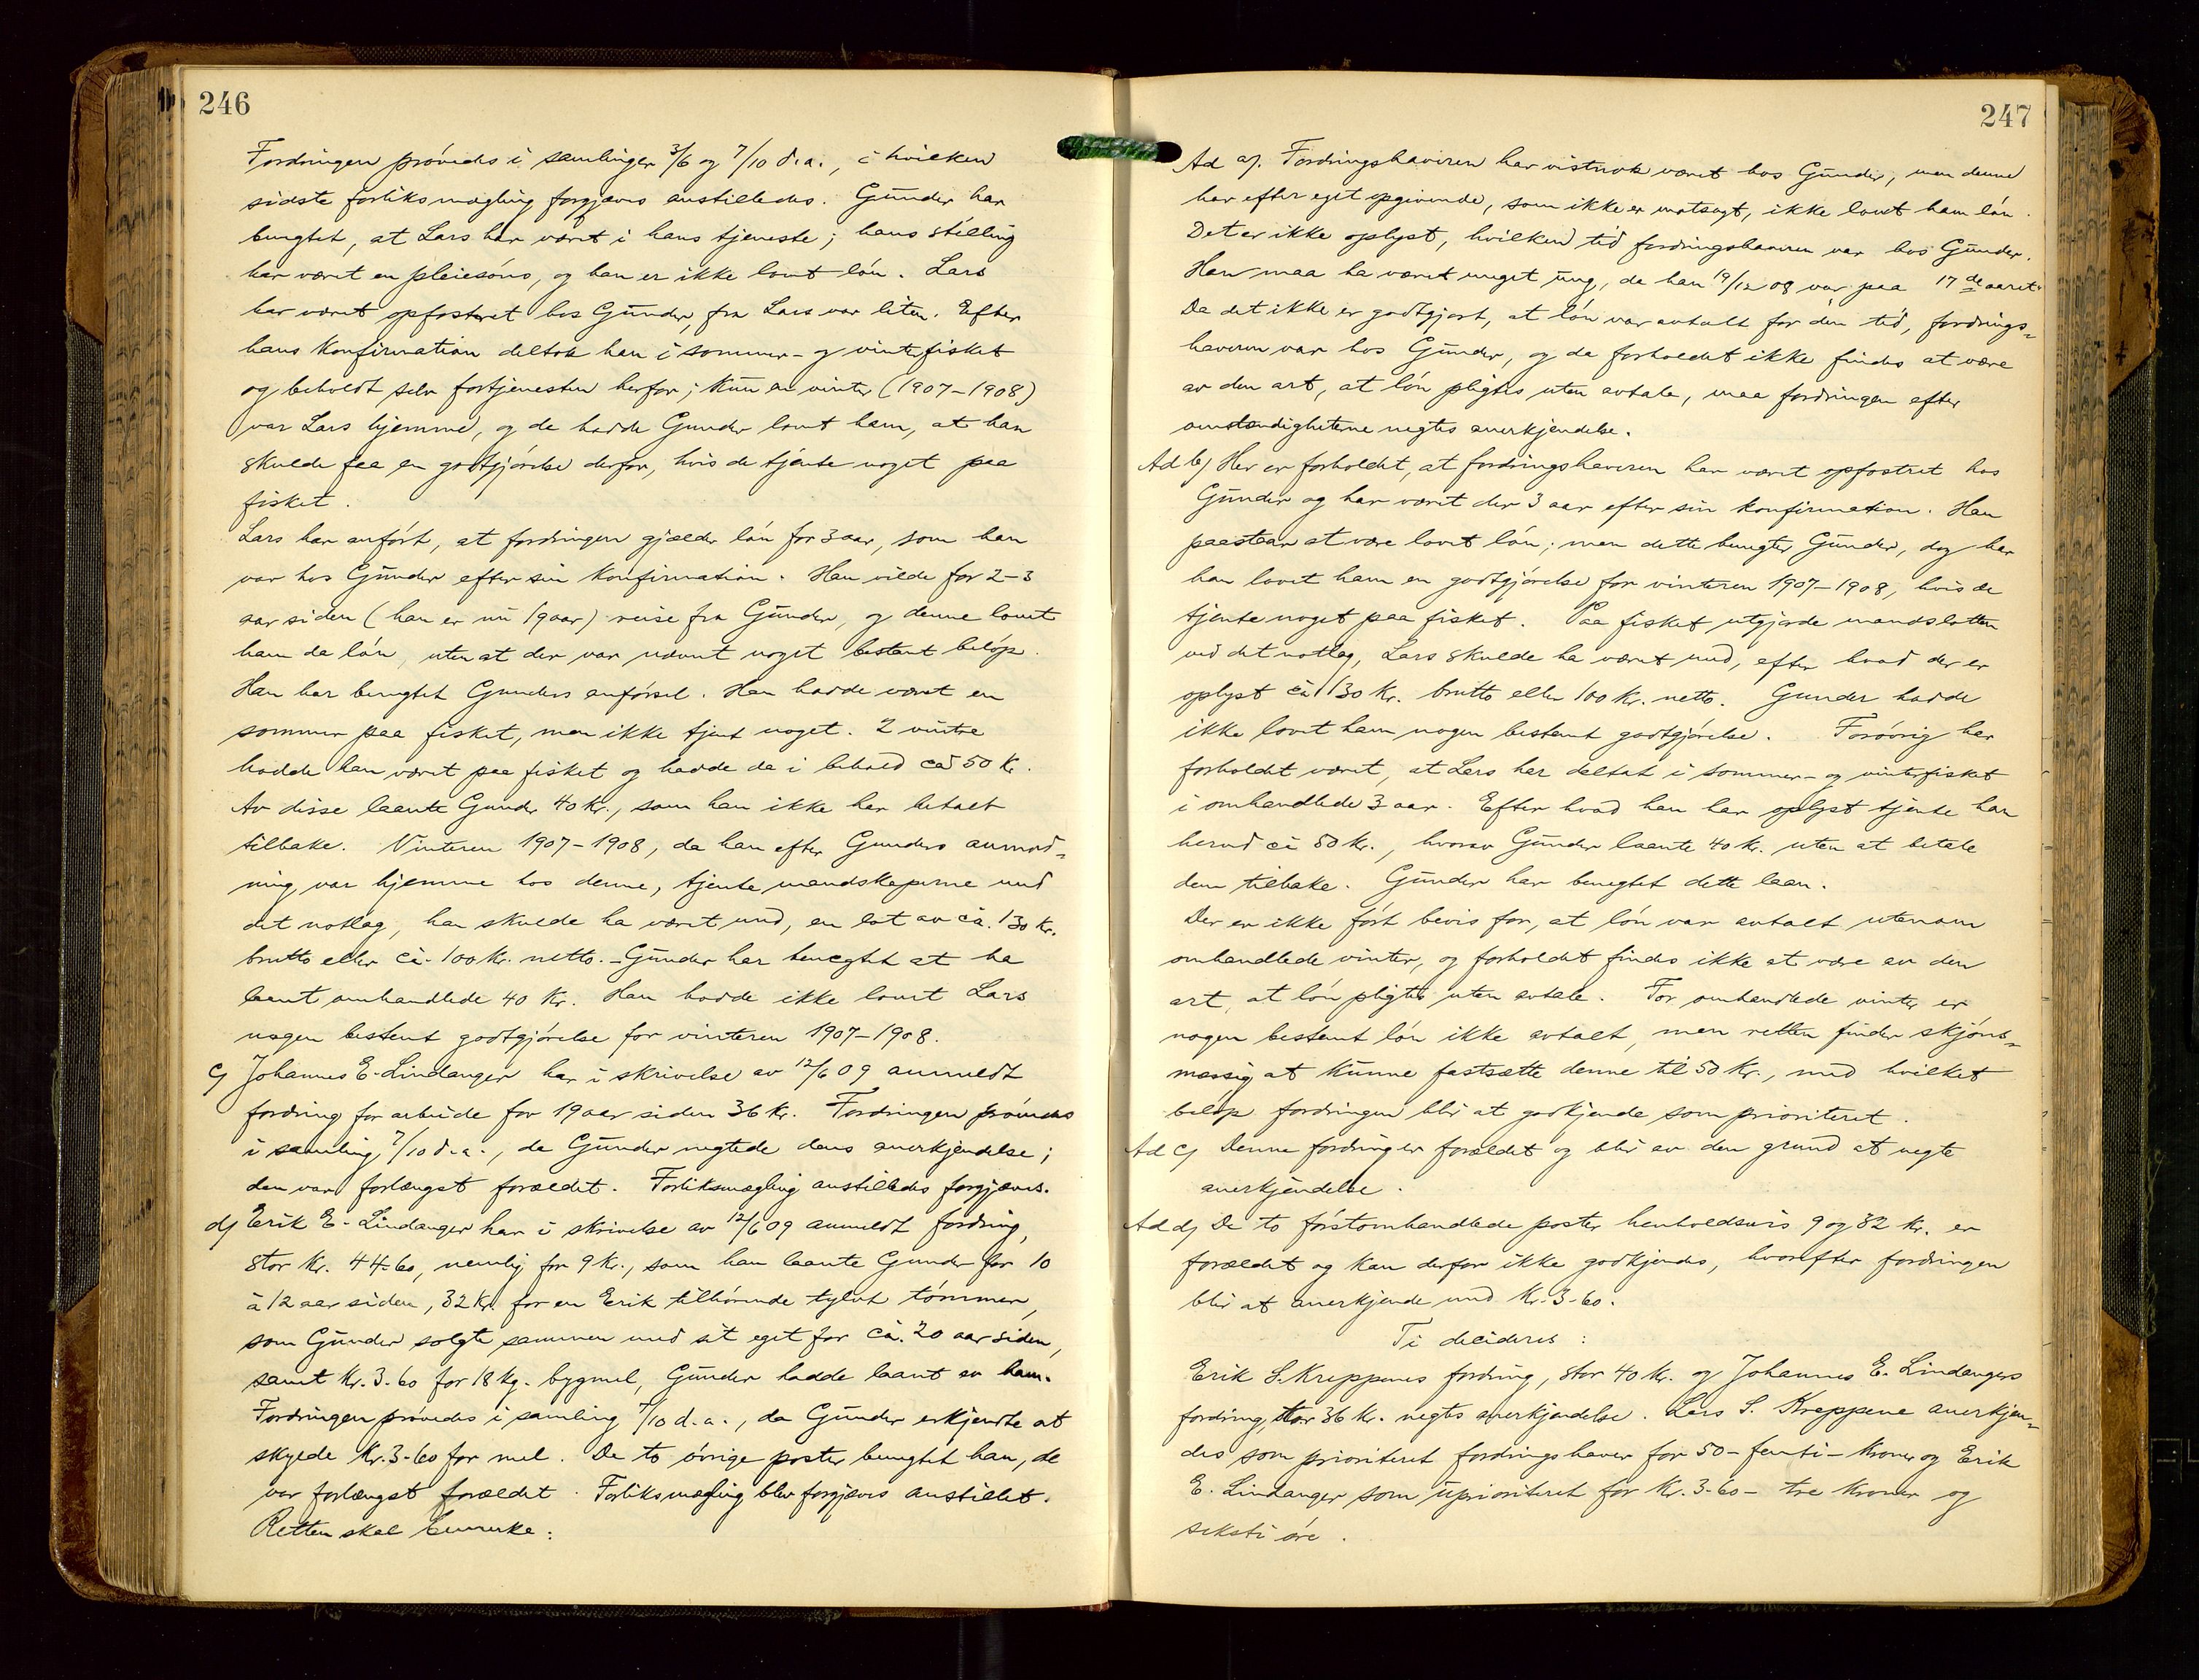 246
Fordringen prövedes i samlinger 3/6 og 7/10 d.a., i hvilken
sidste forliksmægling forgjæves anstilledes. Gunder har
benegtet, at Lars har været i hans tjeneste; hans stilling
har været en pleiesöns, og han er ikke lovet lön. Lars
har været opfostret hos Gunder, fra Lars var liten. Efter
hans konfirmation deltok han i sommer- og vinterfisket
og beholdt selv fortjenesten herfor; kun en vinter (1907-1908)
var Lars hjemme, og da hadde Gunder lovet ham, at han
skulde faa en godtgjörelse derfor, hvis de tjente noget paa
fisket.
Lars har anfört, at fordringen gjælder lön for 3 aar, som han
var hos Gunder efter sin konfirmation. Han vilde for 2-3
aar siden (han er nu 19 aar) reise fra Gunder, og denne lovet
ham da lön, uten at der var nævnt noget bestemt belöp.
Han har benegtet Gunders anförsel. Han hadde været en
sommer paa fisket, men ikke tjent noget. 2 vintre
hadde han været paa fisket og hadde da i behold ca 50 kr.
Av disse laante Gunder 40 kr., som han ikke har betalt
tilbake. Vinteren 1907-1908, da han efter Gunders anmod=
ning var hjemme hos denne, tjente mandskaperne med
det notlag, han skulde ha været med, en lot av ca. 130 kr.
brutto eller ca. 100 kr. netto. - Gunder har benegtet at ha
laant omhandlede 40 kr. Han hadde ikke lovet Lars
nogen bestemt godtgjörelse for vinteren 1907-1908.
c) Johannes E. Lindanger har i skrivelse av 12/6 09 anmeldt
fordring for arbeide for 19 aar siden 36 kr. Fordringen prövedes
i samling 7/10 d.a., da Gunder negtede dens anerkjendelse;
den var forlængst forældet. Forliksmægling anstilledes forgjæves.
d) Erik E. Lindanger har i skrivelse av 12/6 09 anmeldt fordring,
stor kr. 44-60, nemlig for 9 kr., som han laante Gunder for 10
à 12 aar siden, 32 kr. for en Erik tilhörende tylvt tömmer,
som Gunder solgte sammen med sit eget for ca. 20 aar siden,
samt kr. 3-60 for 18 kg. bygmel, Gunder hadde laant av ham.
Fordringen prövedes i samling 7/10 d.a., da Gunder erkjendte at
skylde kr. 3-60 for mel. De to övrige poster benegtet han, de
var forlængst forældet. Forliksmægling blev forgjæves anstillet.
Retten skal bemerke:
247
Ad a). Fordringshaveren har vistnok været hos Gunder, men denne
har efter eget opgivende, som ikke er motsagt, ikke lovet ham lön.
Det er ikke oplyst, hvilken tid fordringshaveren var hos Gunder.
Han maa ha været meget ung, da han 19/12 08 var paa 17de aaret.
Da det ikke er godtgjort, at lön var avtalt for den tid, fordrings=
haveren var hos Gunder, og da forholdet ikke findes at være
av den art, at lön pligtes uten avtale, maa fordringen efter
omstændigheterne negtes anerkjendelse.
Ad b) Her er forholdet, at fordringshaveren har været opfostret hos
Gunder og har været der 3 aar efter sin konfirmation. Han
paastaar at være lovet lön; men dette benegter Gunder, dog har
han lovet ham en godtgjörelse for vinteren 1907-1908, hvis de
tjente noget paa fisket. Paa fisket utgjorde mandslotten
ved det notlag, Lars skulde ha været med, efter hvad der er
oplyst ca 130 kr. brutto eller 100 kr. netto. Gunder hadde
ikke lovet ham nogen bestemt godtgjörelse. Forövrig har
forholdet været, at Lars har deltat i sommer- og vinterfisket
i omhandlede 3 aar. Efter hvad han har oplyst tjente han
herved ca 50 kr., hvorav Gunder laante 40 kr. uten at betale
dem tilbake. Gunder har benegtet dette laan.
Der er ikke fört bevis for, at lön var avtalt utenom
omhandlede vinter, og forholdet findes ikke at være av den
art, at lön pligtes uten avtale. For omhandlede vinter er
nogen bestemt lön ikke avtalt, men retten finder skjöns=
mæssig at kunne fastsætte denne til 50 kr., med hvilket
belöp fordringen blir at godkjende som prioritert.
Ad c) Denne fordring er forældet og blir av den grund at negte
anerkjendelse.
Ad d) De to förstomhandlede poster henholdsvis 9 og 32 kr. er
forældet og kan derfor ikke godkjendes, hvorefter fordringen
blir at anerkjende med kr. 3-60.
Ti decideres:
Erik S. Kreppenes fordring, stor 40 kr. og Johannes E. Lindangers
fordring, stor 36 kr. negtes anerkjendelse. Lars S. Kreppene anerkjen=
des som prioriteret fordringshaver for 50 - femti - kroner og Erik
E. Lindanger som uprioriteret for kr. 3-60 - tre kroner og
seksti öre.